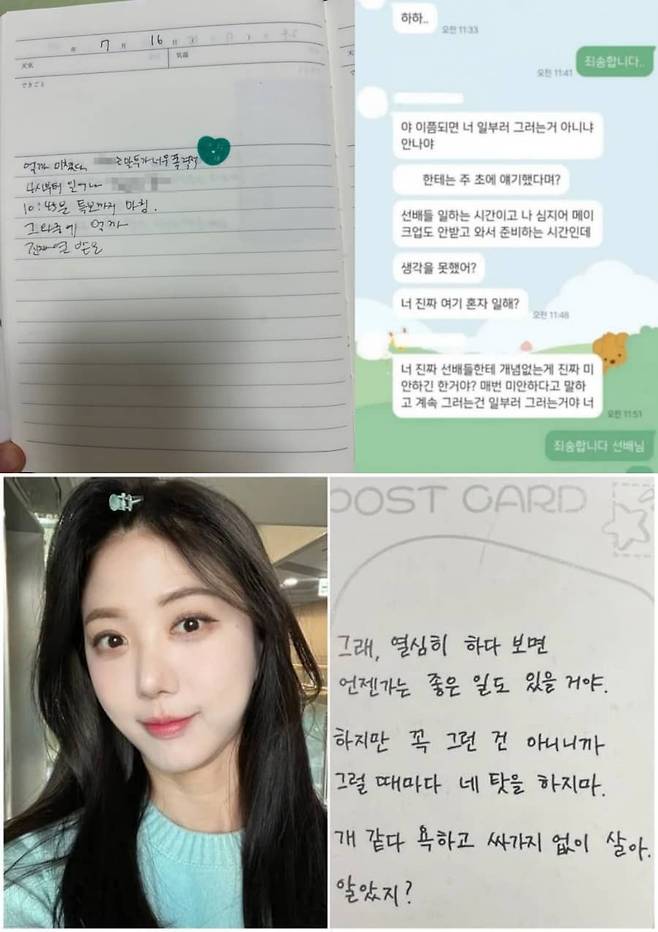 年 7 月 16 日
天気
気温
できごと
억까 미쳤다.
4시부터 일어나
10:45분 특보까지 마침.
그 와중에 억까
진짜 열 받음
하하..
오전 11:33
죄송합니다..
오전 11:41
야 이쯤되면 너 일부러 그러는거 아니냐
안나야
한테는 주 초에 얘기했다며?
선배들 일하는 시간이고 나 심지어 메이
크업도 안받고 와서 준비하는 시간인데
생각을 못했어?
너 진짜 여기 혼자 일해?
오전 11:48
너 진짜 선배들한테 개념없는게 진짜 미
안하긴 한거야? 매번 미안하다고 말하
고 계속 그러는건 일부러 그러는거야 너
오전 11:51
죄송합니다 선배님
POST CARD
그래, 열심히 하다 보면
언젠가는 좋은 일도 있을 거야.
하지만 꼭 그런 건 아니니까
그럴 때마다 네 탓을 하지마.
개 같다 욕하고 싸가지 없이 살아.
알았지?